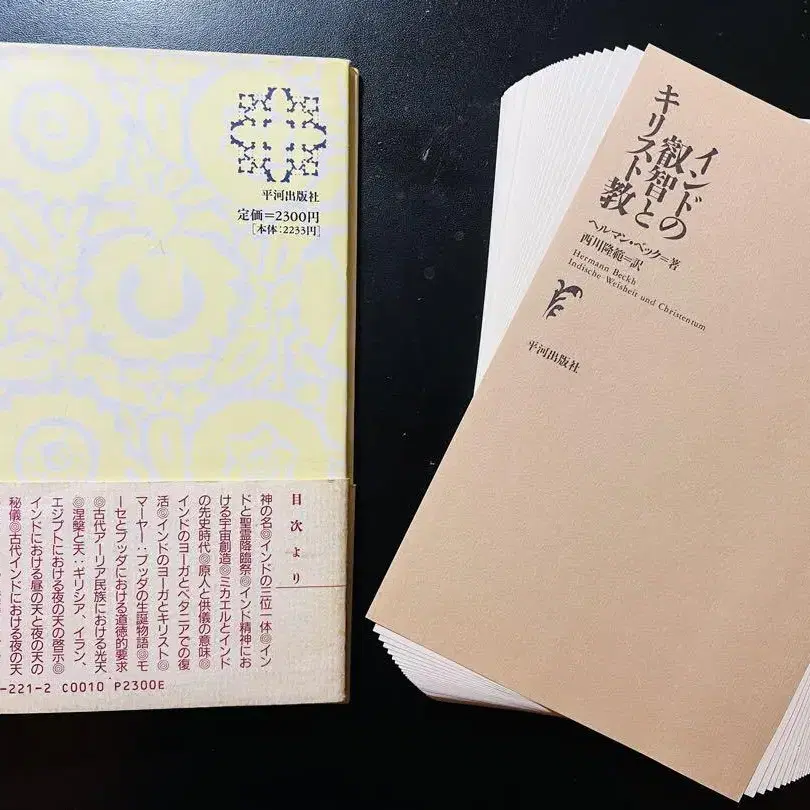 平河出版社
定価=2300円
[本体:2233円]
目次より
神の名◎インドの三位一体◎イン
ドと聖霊降臨祭◎インド精神にお
ける宇宙創造◎ミカエルとインド
の先史時代◎原人と供儀の意味◎
インドのヨーガとベタニアでの復
活◎インドのヨーガとキリスト◎
マーヤー:ブッダの生誕物語◎モ
ーセとブッダにおける道徳的要求
◎古代アーリア民族における光天
◎涅槃と天:ギリシア、イラン、
エジプトにおける夜の天の啓示◎
インドにおける昼の天と夜の天の
秘儀◎古代インドにおける夜の天
-221-2 C0010 P2300E
インドの
叡智と
キリスト教
ヘルマン・ベック=著
西川隆範=訳
Hermann Beckh
Indische Weisheit und Christentum
平河出版社